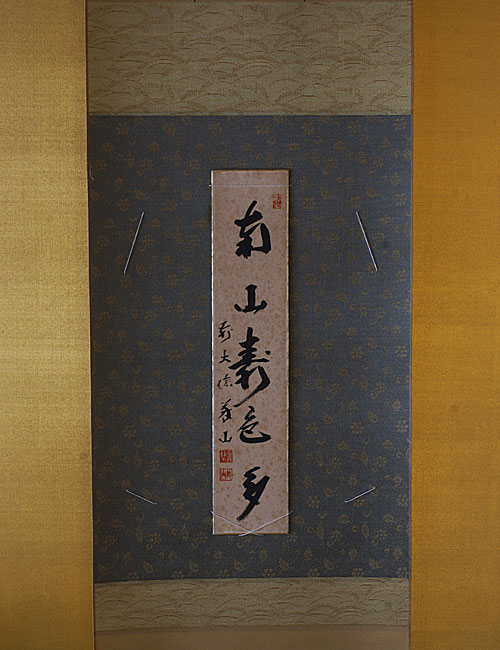 南山寿色多
前大徳義山